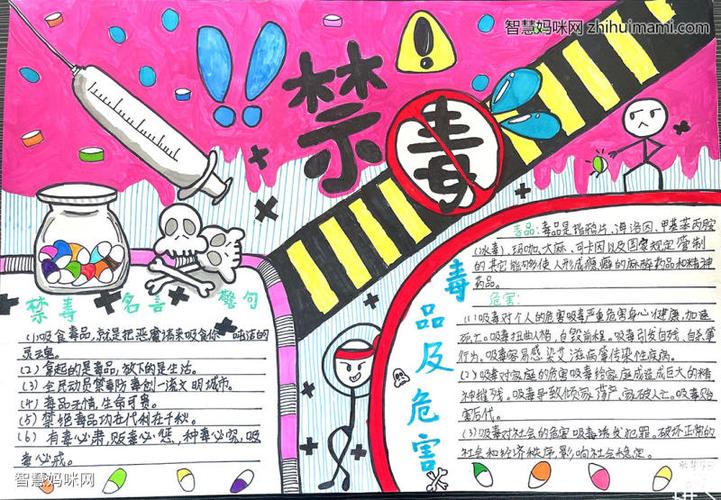 智慧妈咪网 zhihuimami.com
禁毒
禁毒名言警句
(1)吸食毒品,就是把恶魔请来吸食你
灵魂。
(2)拿起的是毒品,放下的是生活。
(3)全民动员禁毒防毒创一流文明城市。
(4)毒品无情,生命可贵。
(5)禁绝毒品功在代利在千秋。
(6)有毒必肃,贩毒必惩,种毒必究,吸
毒必戒。
毒品及危害
毒品:毒品是指鸦片、海洛因、甲基苯丙胺
(冰毒)、吗啡、大麻、可卡因以及国家规定管制
的其它能够使人形成瘾癖的麻醉药品和精神
药品。
危害:
(1)吸毒对个人的危害吸毒严重危害身心健康,加速
死亡。吸毒扭曲人格,自毁前程。吸毒引发自残、自杀等
行为。吸毒容易感染艾滋病等传染性疾病。
(2)吸毒对家庭的危害吸毒给家庭成造成巨大的精
神摧残。吸毒导致倾家荡产,家破人亡。吸毒贻
害后代。
(3)吸毒对社会的危害吸毒诱发犯罪。破坏正常的
社会和经济秩序,影响社会稳定。
智慧妈咪网